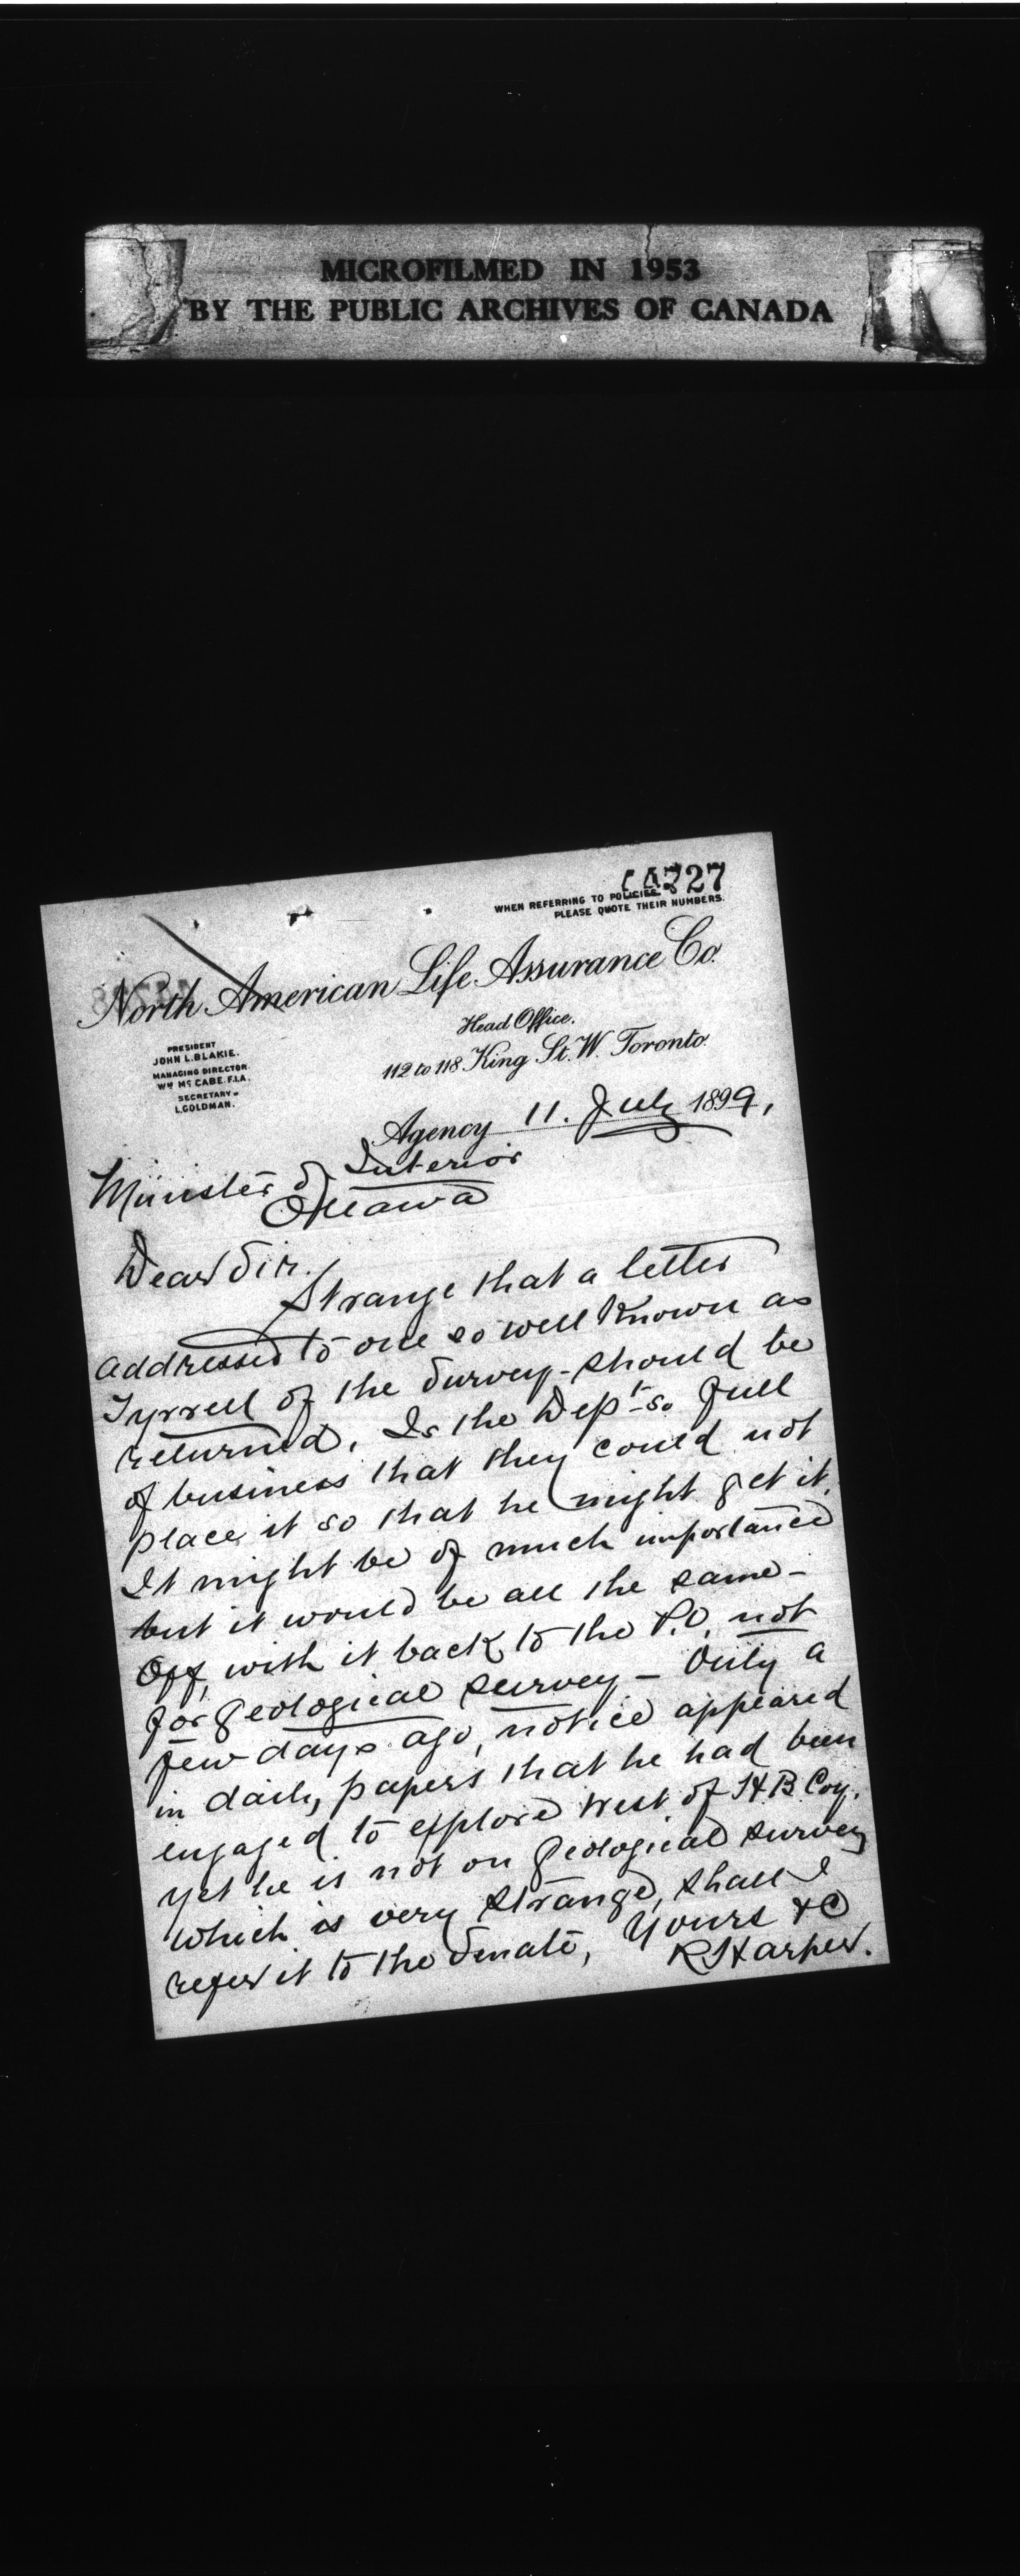 MICROFILMED IN 1953
BY THE PUBLIC ARCHIVES OF CANADA
727
WHEN REFERRING TO POLICIES
PLEASE QUOTE THEIR NUMBERS.
North American Life Assurance Co.
Head Office.
112 to 118 King St. W. Toronto.
PRESIDENT
JOHN L. BLAIKIE.
MANAGING DIRECTOR
WM MCCABE. F.I.A.
SECRETARY
L. GOLDMAN.
Agency 11. July 1899,
Minister of Interior
Ottawa
Dear Sir.
Strange that a letter
addressed to one so well known as
Tyrrell of the Survey - should be
returned, Is the Dept so full
of business that they could not
place it so that he might get it.
It might be of much importance
but it would be all the same -
Off, with it back to the P.O. not
for geological survey - Only a
few days ago, notice appeared
in daily papers that he had been
engaged to explore West of H B Coy.
yet he is not on geological survey
which is very strange, shall I
refer it to the Senate, Yours &c
R Harper.